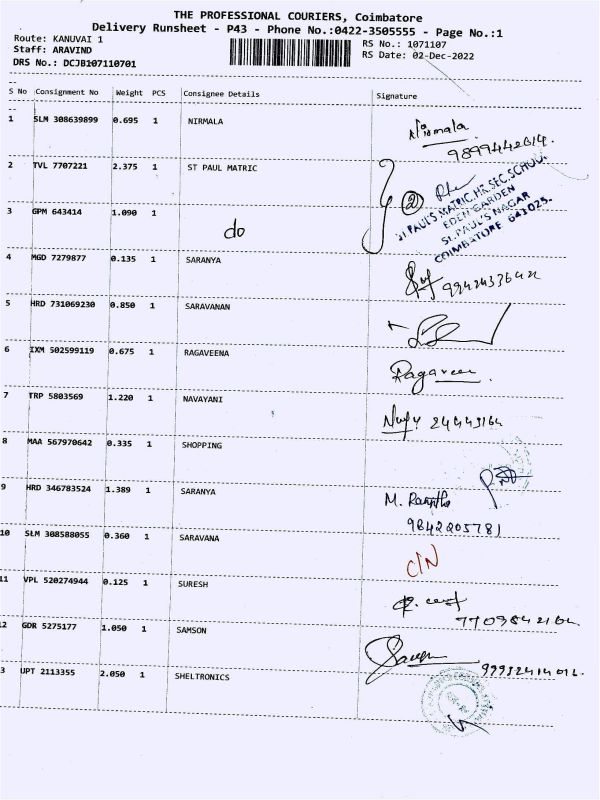 THE PROFESSIONAL COURIERS, Coimbatore
Delivery Runsheet - P43 - Phone No.:0422-3505555 - Page No.:1
Route: KANUVAI 1 RS No.: 1071107
Staff: ARAVIND RS Date: 02-Dec-2022
DRS No.: DCJB107110701
S No Consignment No Weight PCS Consignee Details Signature
1 SLM 308639899 0.695 1 NIRMALA Nirmala
9899442614.
2 TVL 7707221 2.375 1 ST PAUL MATRIC 2
ST PAUL'S MATRIC.HR.SEC.SCHOOL
EDEN GARDEN
ST.PAUL'S NAGAR
COIMBATORE 641025.
3 GPM 643414 1.090 1 do
4 MGD 7279877 0.135 1 SARANYA
5 HRD 731069230 0.850 1 SARAVANAN
6 IXM 502599119 0.675 1 RAGAVEENA Ragaveen
7 TRP 5803569 1.220 1 NAVAYANI
8 MAA 567970642 0.335 1 SHOPPING
9 HRD 346783524 1.389 1 SARANYA M.
9842205781
10 SLM 308588055 0.360 1 SARAVANA C/N
11 VPL 520274944 0.125 1 SURESH
12 GDR 5275177 1.050 1 SAMSON
3 UPT 2113355 2.050 1 SHELTRONICS